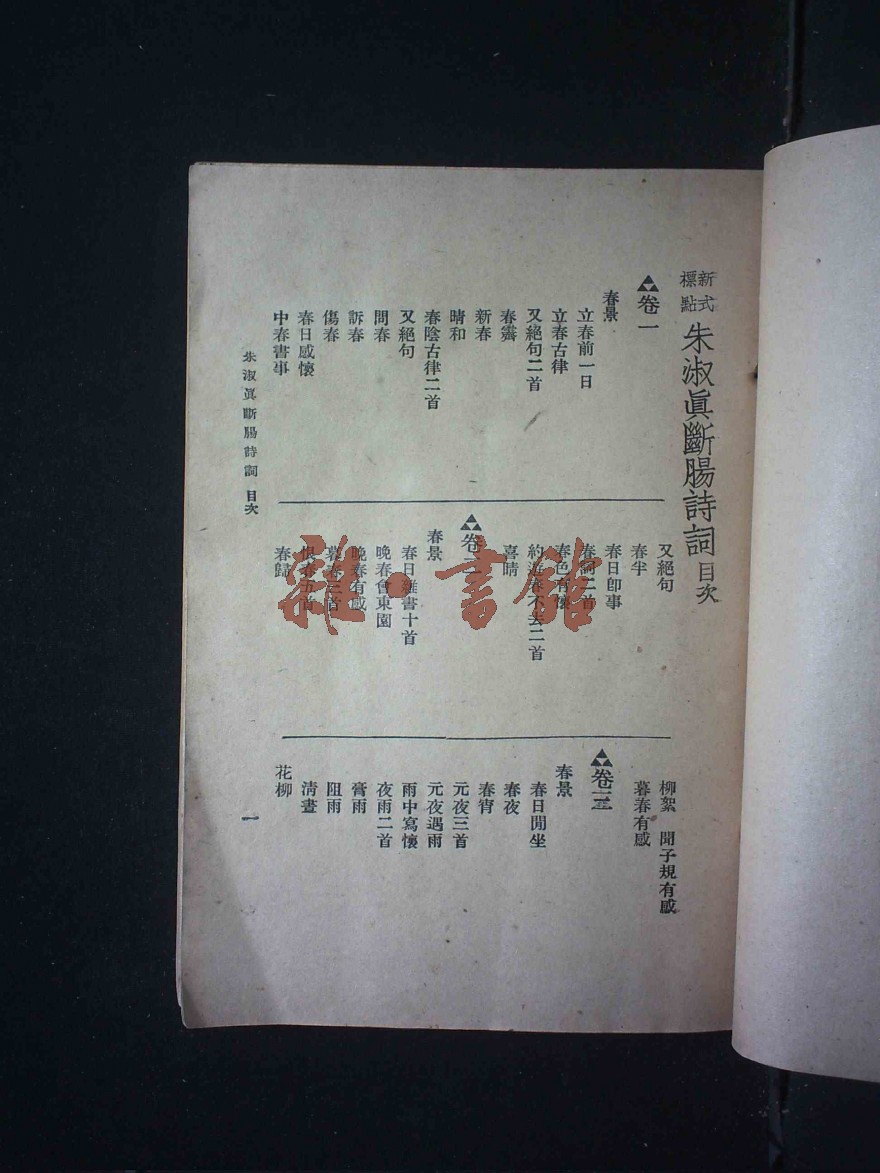 新式標點 朱淑眞斷腸詩詞目次
卷一
春景
立春前一日
立春古律
又絕句二首
春霽
新春
晴和
春陰古律二首
又絕句
問春
訴春
傷春
春日感懷
中春書事
又絕句
春半
春日卽事
春詞二首
春色有懷
約遊春不去二首
喜晴
卷二
春景
春日雜書十首
晚春會東園
晚春有感
暮春三首
恨春五首
春歸
柳絮 聞子規有感
暮春有感
卷三
春景
春日閒坐
春夜
春宵
元夜三首
元夜遇雨
雨中寫懷
夜雨二首
膏雨
阻雨
清晝
花柳
朱淑眞斷腸詩詞 目次
一
雜·書館